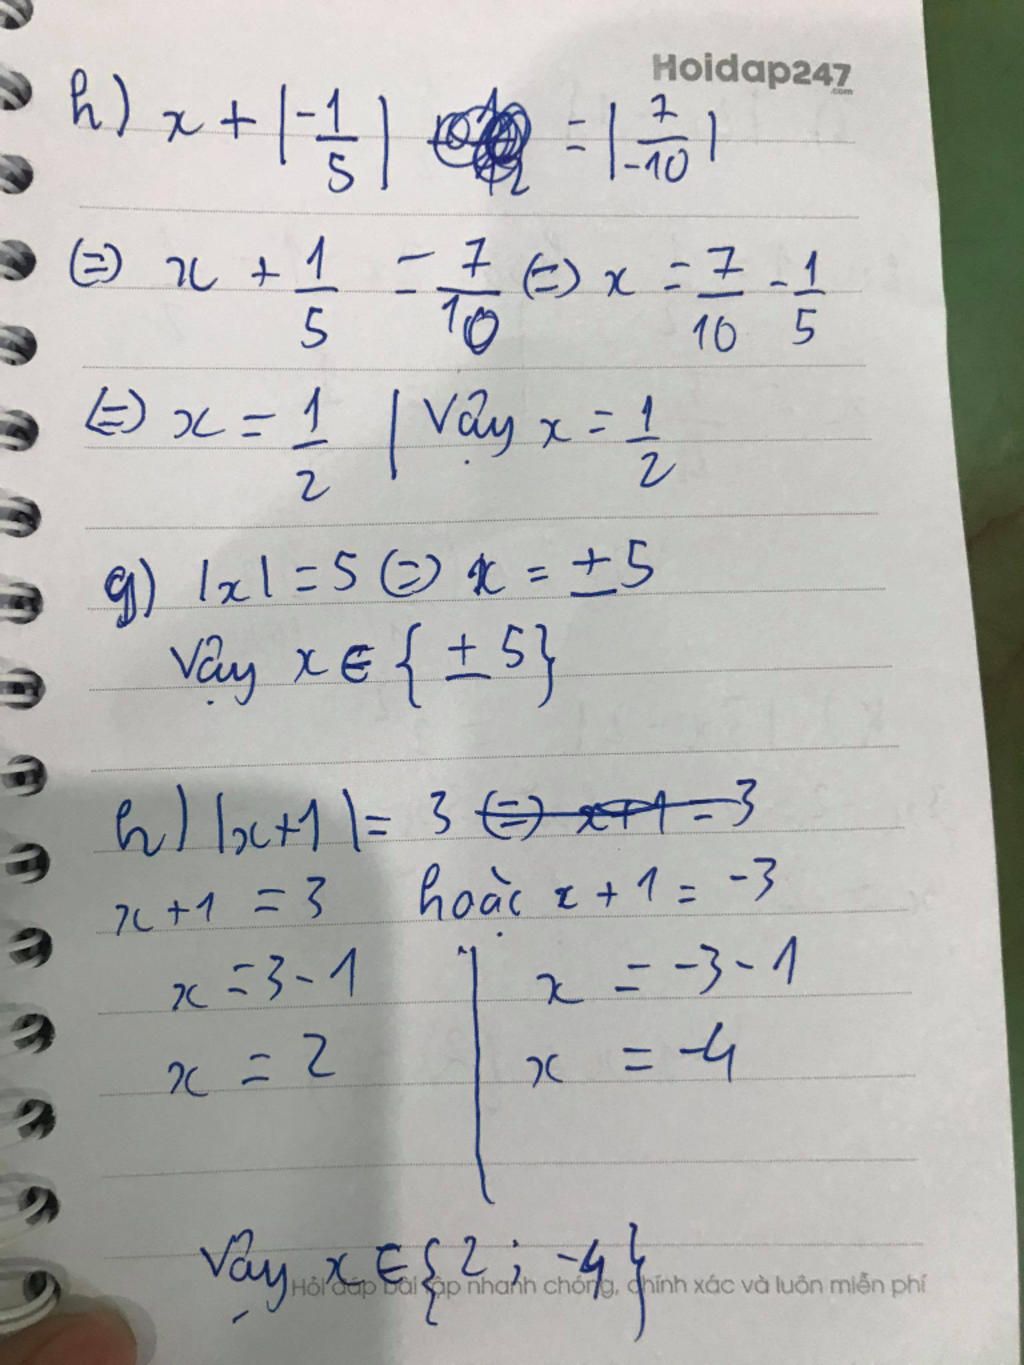 Hoidap247
.com
h) x + |-1/5| = |7/-10|
(=) x + 1/5 = 7/10 (=) x = 7/10 - 1/5
(=) x = 1/2 | Vậy x = 1/2
g) |x| = 5 (=) x = ± 5
Vậy x ∈ { ± 5}
h) |x+1| = 3 (=) x+1 = 3
x+1 = 3 hoặc x + 1 = -3
x = 3 - 1 | x = -3 - 1
x = 2 | x = -4
Vậy x ∈ {2 ; -4}
Hỏi đáp bài tập nhanh chóng, chính xác và luôn miễn phí